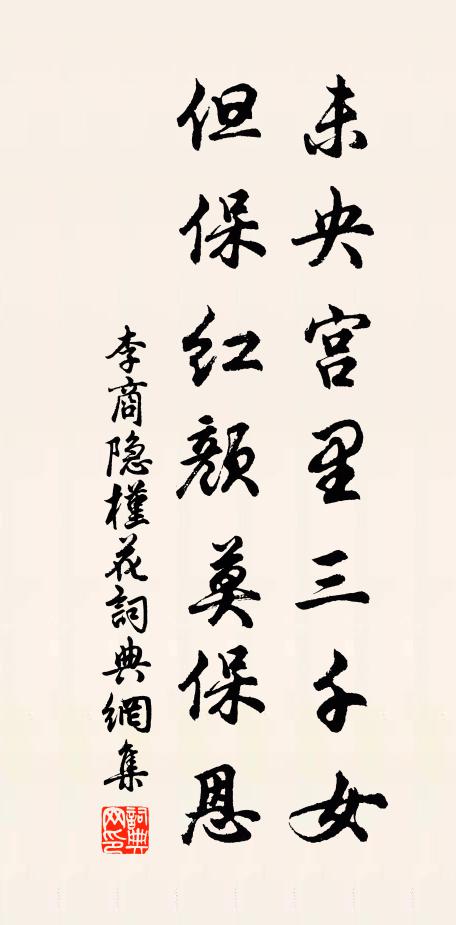 未央宫里三千女
但保红颜莫保恩
李商隐槿花詞典網集
詞典网印